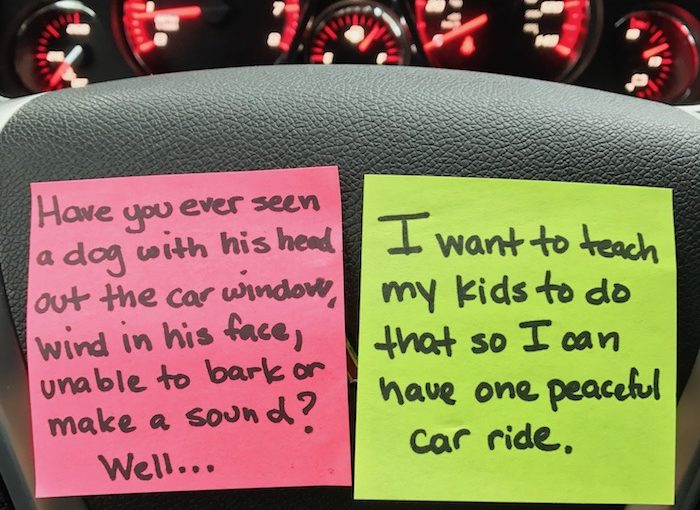 Have you ever seen
a dog with his head
out the car window,
wind in his face,
unable to bark or
make a sound?
Well...
I want to teach
my kids to do
that so I can
have one peaceful
car ride.